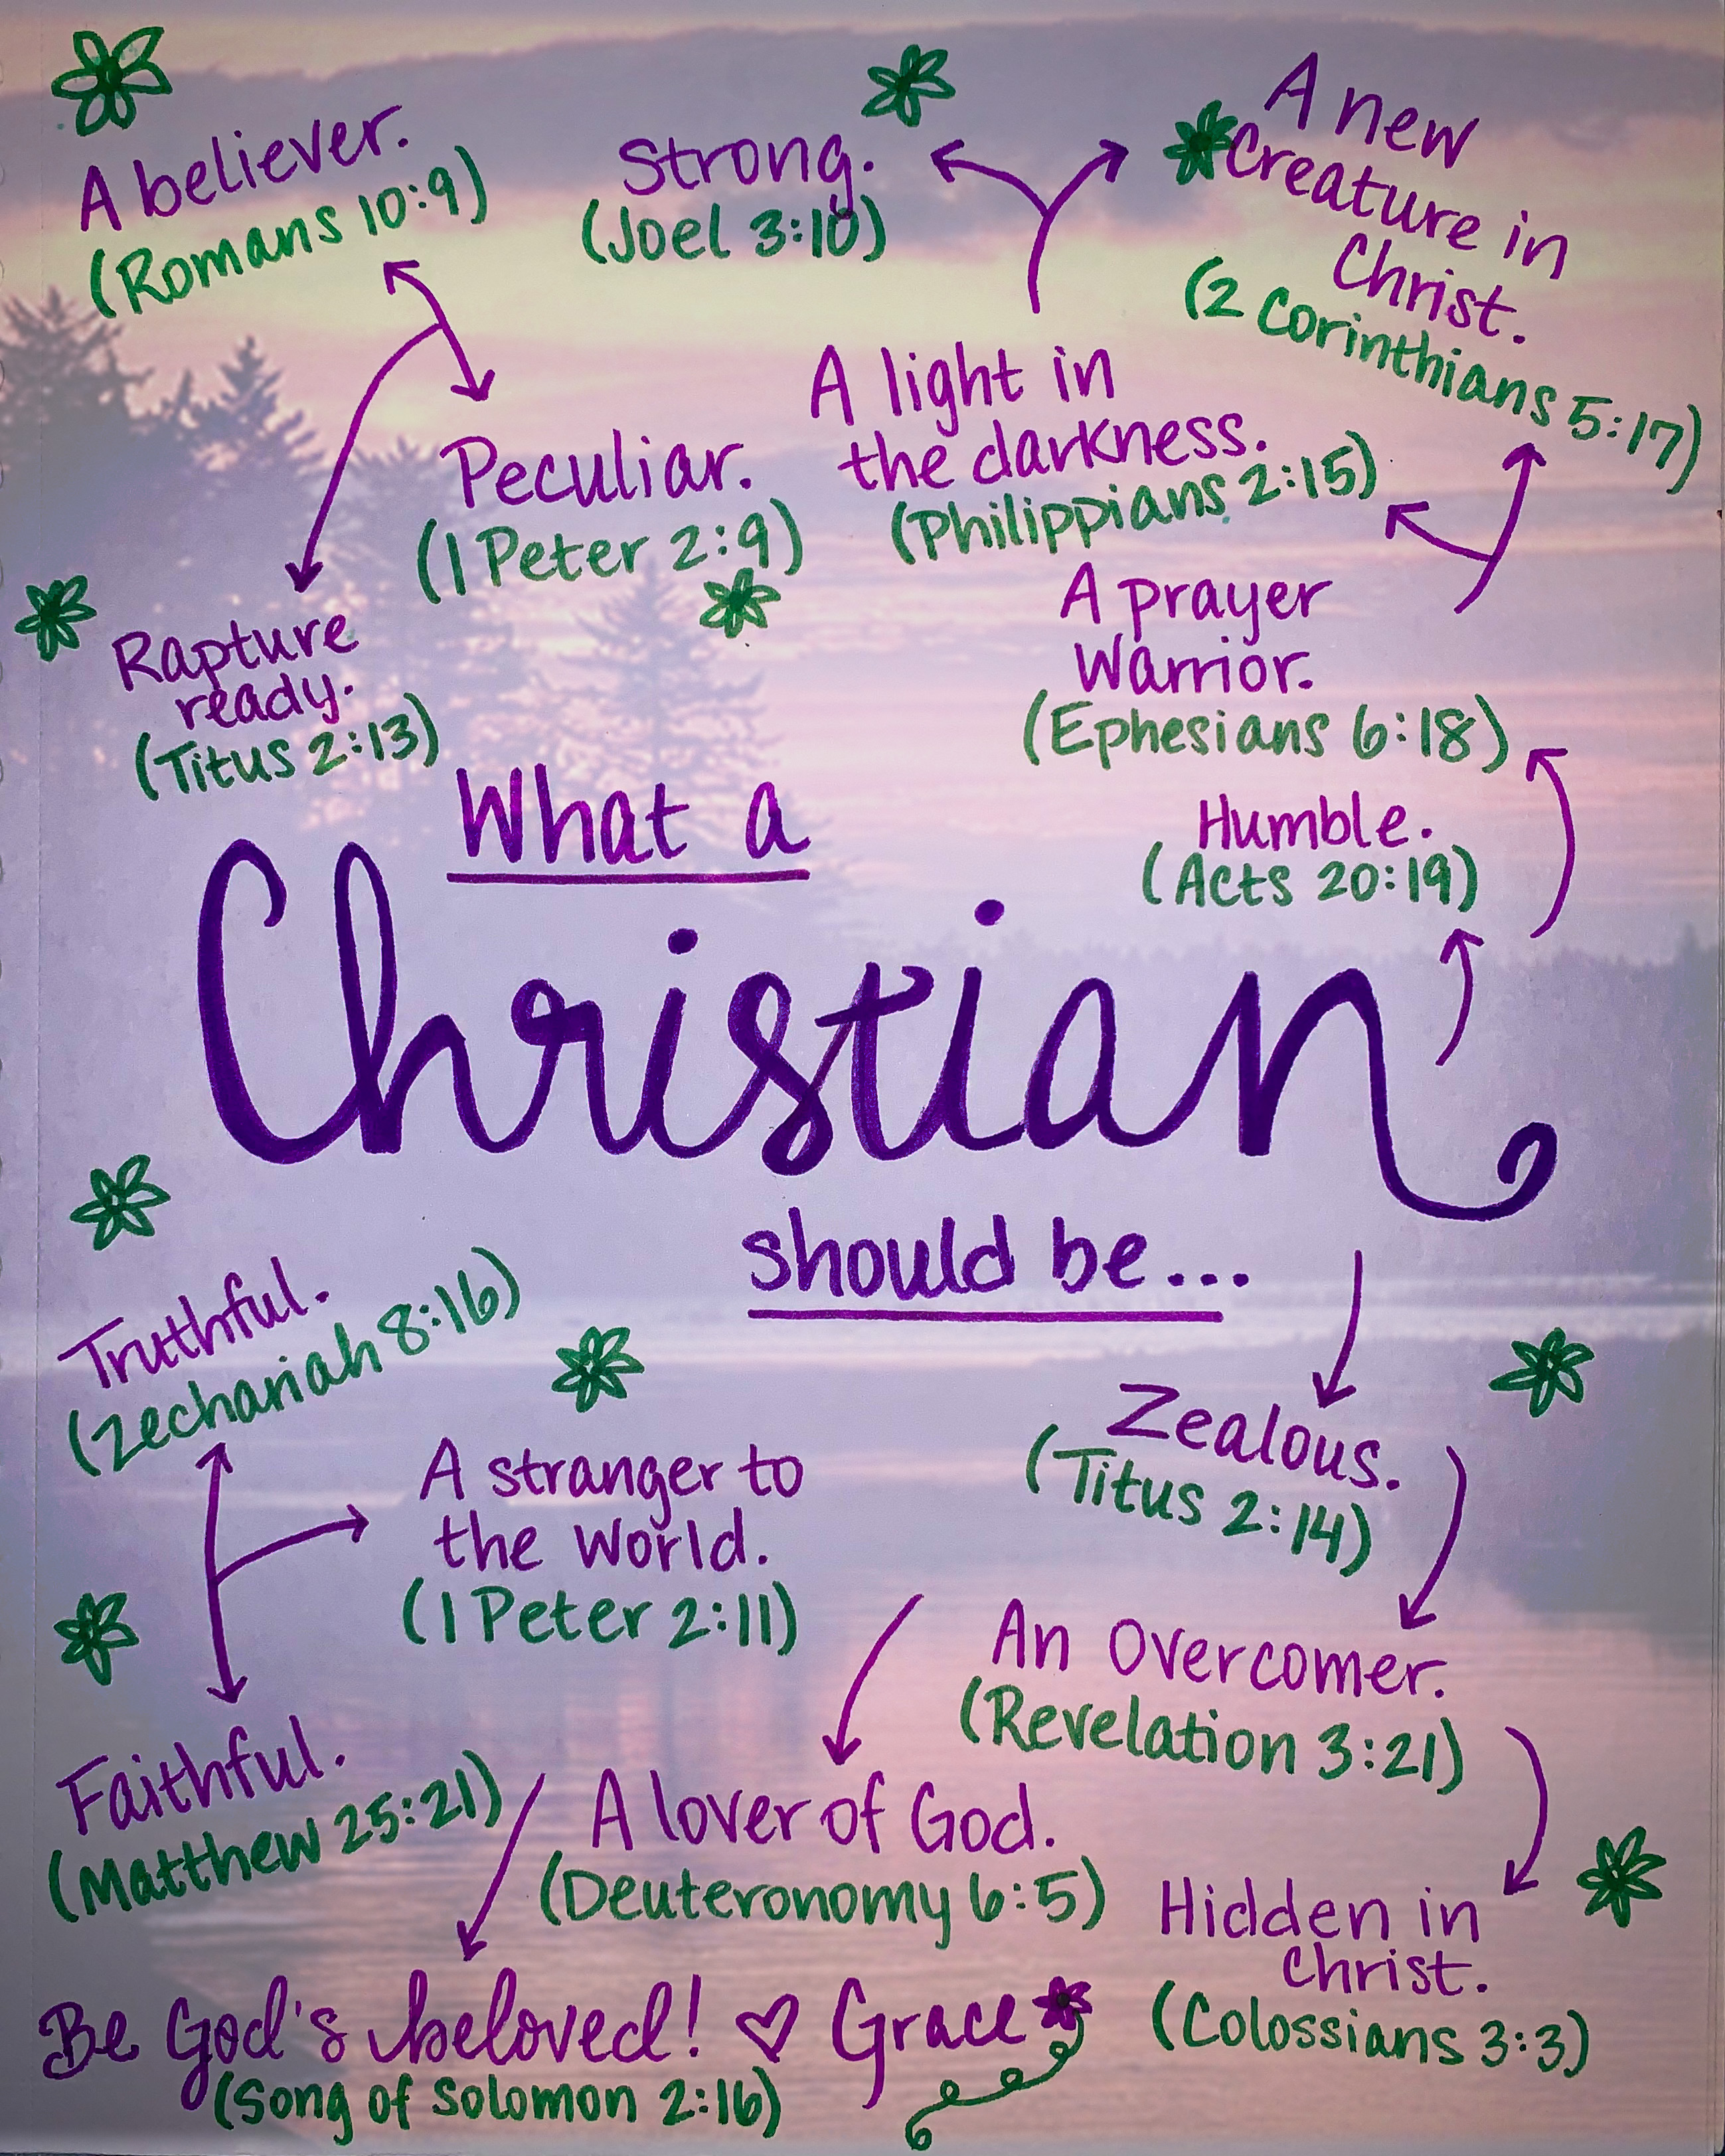 A believer.
(Romans 10:9)
Strong.
(Joel 3:10)
A new
Creature in
Christ.
(2 Corinthians 5:17)
Peculiar.
(1 Peter 2:9)
A light in
the darkness.
(Philippians 2:15)
Rapture
ready.
(Titus 2:13)
A prayer
Warrior.
(Ephesians 6:18)
Humble.
(Acts 20:19)
What a
Christian
should be...
Truthful.
(Zechariah 8:16)
A stranger to
the World.
(1 Peter 2:11)
Zealous.
(Titus 2:14)
An Overcomer.
(Revelation 3:21)
Faithful.
(Matthew 25:21)
A lover of God.
(Deuteronomy 6:5)
Hidden in
Christ.
(Colossians 3:3)
Be God's beloved! ♡ Grace
(Song of Solomon 2:16)